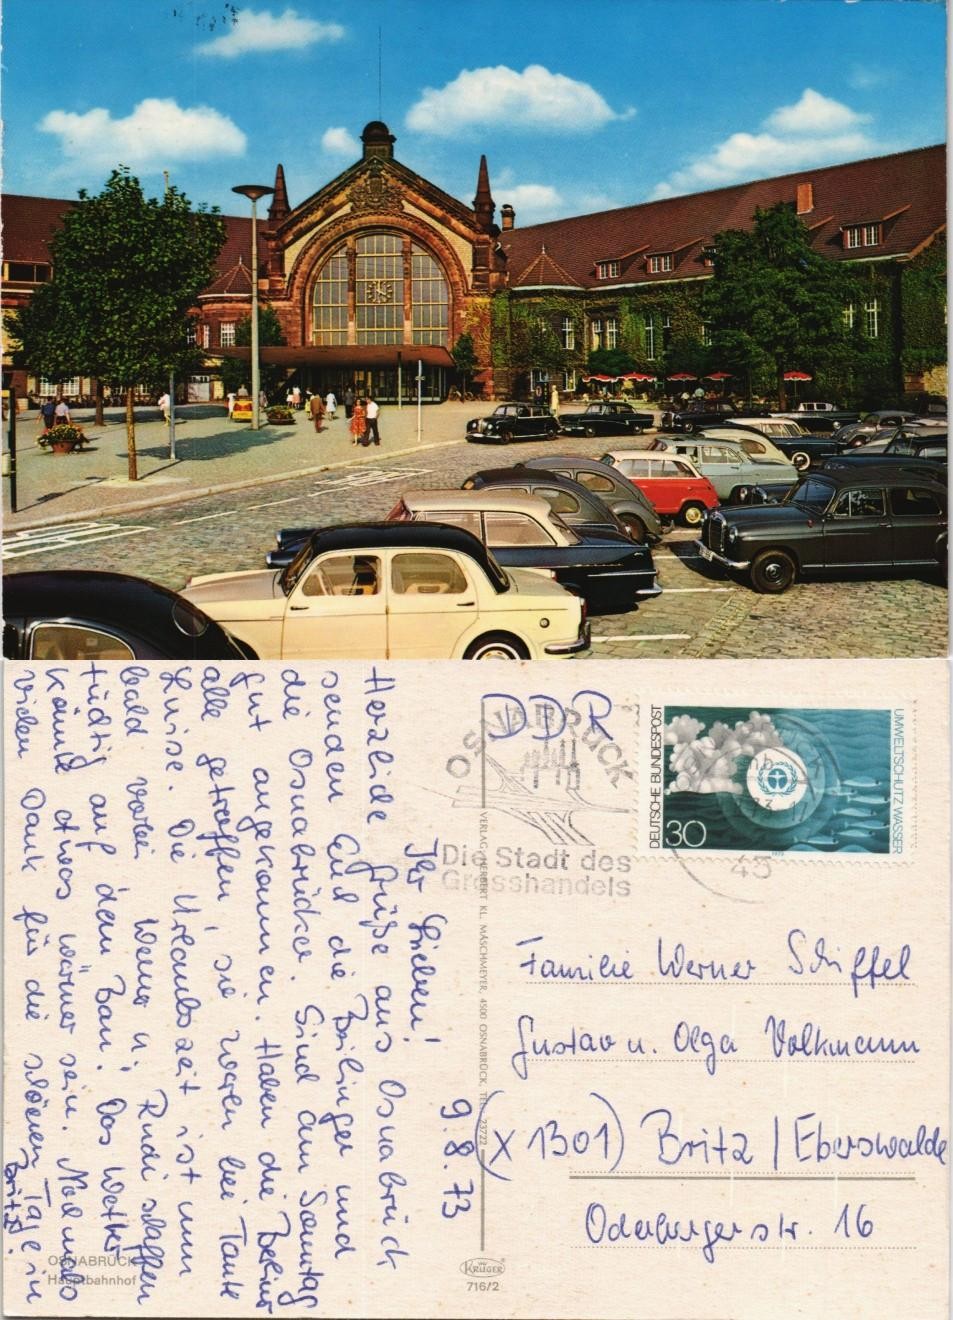 DDR
OSNABRÜCK
Die Stadt des
Grosshandels
DEUTSCHE BUNDESPOST
30
UMWELTSCHUTZ WASSER
1973
45
9.8.73
Ihr Lieben!
Herzliche Grüße aus Osnabrück
senden Euch die Brilinger und
die Osnabrücker. Sind am Sonntag
gut angekommen. Haben die Berliner
alle getroffen, sie waren bei Tante
Luise. Die Urlaubszeit ist nun
bald vorbei. Werner u. Rudi schaffen
tüchtig auf dem Bau. Das Wetter
könnte etwas wärmer sein. Nochmals
vielen Dank für die schönen Tage in
Britz.
Familie Werner Schiffel
Gustav u. Olga Volkmann
(X 1301) Britz / Eberswalde
Oderbergerstr. 16
VERLAG HERBERT KL. MASCHMEYER, 4500 OSNABRÜCK, TEL. 23722
OSNABRÜCK
Hauptbahnhof
KRÜGER
716/2